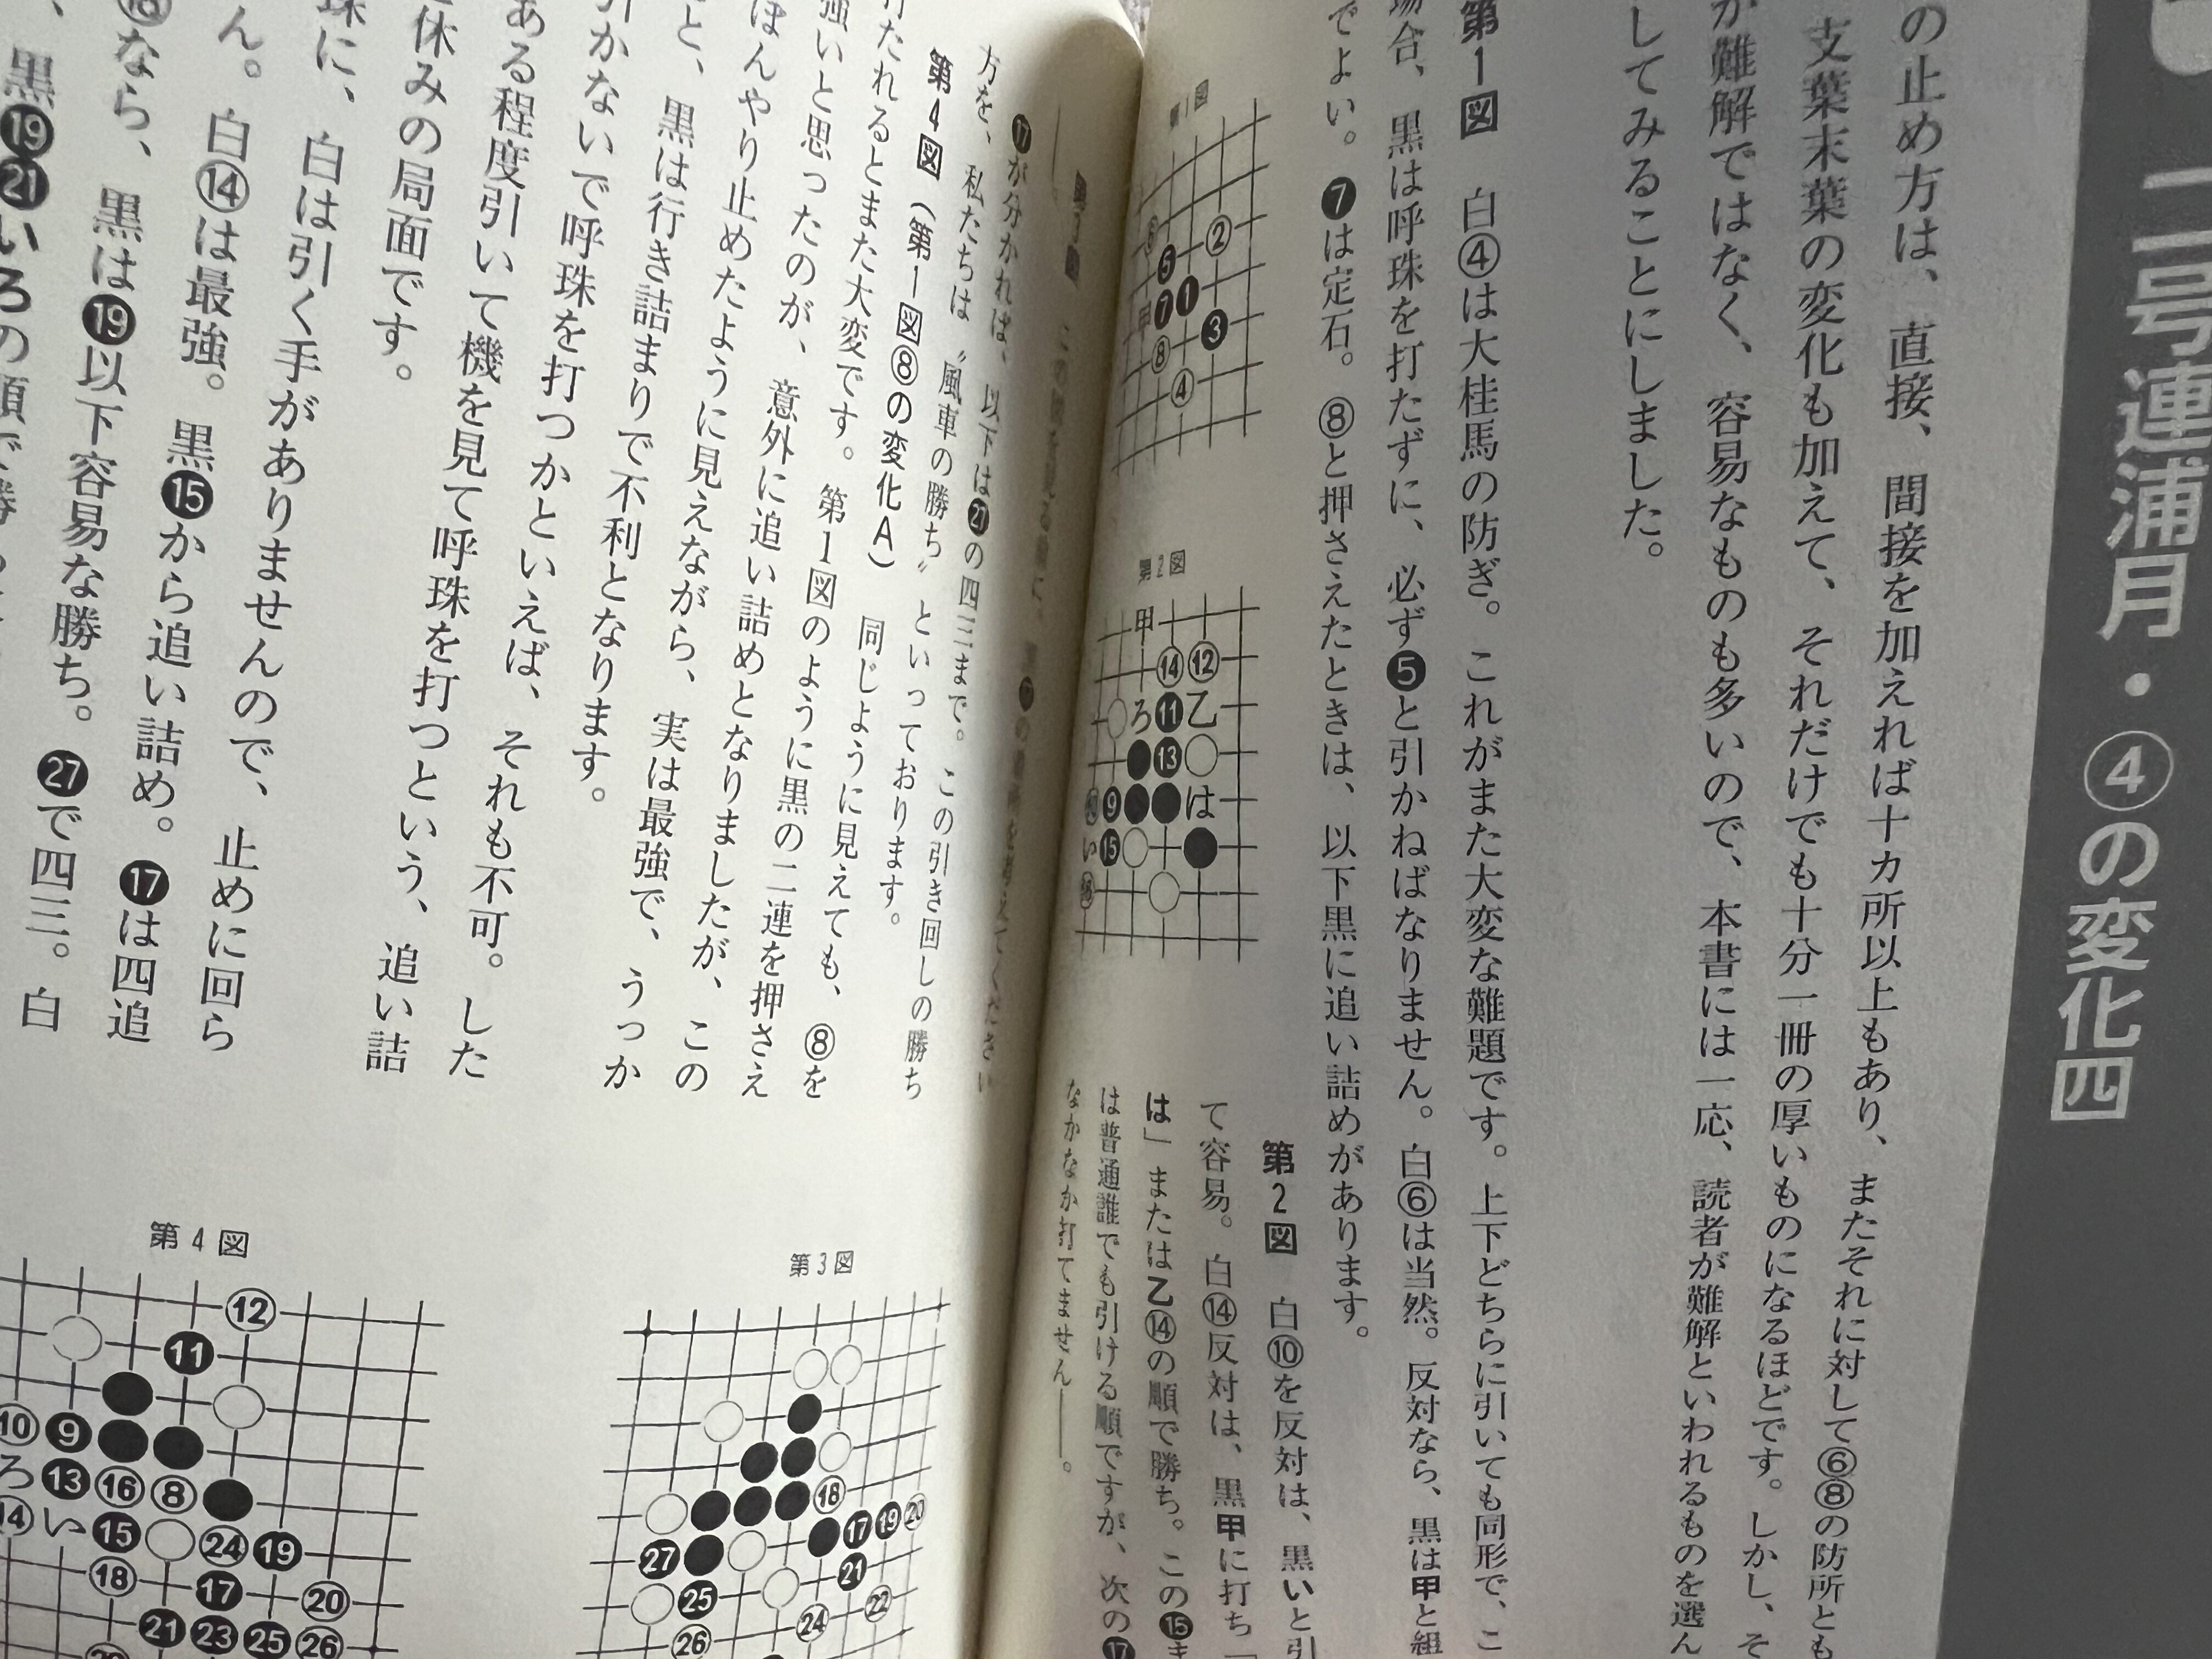 二号連浦月・④の変化四
の止め方は、直接、間接を加えれば十カ所以上もあり、またそれに対して⑥⑧の防所とも
支葉末葉の変化も加えて、それだけでも十分一冊の厚いものになるほどです。しかし、そ
が難解ではなく、容易なものも多いので、本書には一応、読者が難解といわれるものを選ん
してみることにしました。
第1図 白④は大桂馬の防ぎ。これがまた大変な難題です。上下どちらに引いても同形で、こ
場合、黒は呼珠を打たずに、必ず❺と引かねばなりません。白⑥は当然。反対なら、黒は甲と組
でよい。❼は定石。⑧と押さえたときは、以下黒に追い詰めがあります。
第2図 白⑩を反対は、黒いと引
て容易。白⑭反対は、黒甲に打ち「
は」または乙⑭の順で勝ち。この⓯ま
は普通誰でも引ける順ですが、次の⓱
なかなか打てません――。
第1図
②
❺
❼
❶
甲
❸
⑧
④
第2図
甲
⑭
⑫
ろ
⓫
乙
⓭
❾
は
い
⓯
⓱が分かれば、以下は㉗の四三まで。この引き回しの勝ち
方を、私たちは〝風車の勝ち〟といっております。
第4図(第1図⑧の変化A) 同じように見えても、⑧を
打たれるとまた大変です。第1図のように黒の二連を押さえ
強いと思ったのが、意外に追い詰めとなりましたが、この
ぼんやり止めたように見えながら、実は最強で、うっか
と、黒は行き詰まりで不利となります。
引かないで呼珠を打つかといえば、それも不可。した
ある程度引いて機を見て呼珠を打つという、追い詰
休みの局面です。
珠に、白は引く手がありませんので、止めに回ら
ん。白⑭は最強。黒⓯から追い詰め。⓱は四追
なら、黒は⓳以下容易な勝ち。㉗で四三。白
、黒⓳㉑いろの順で勝
第3図
⑱
⓱
⓳
⑳
㉗
㉑
㉕
㉒
㉔
㉖
第4図
⑫
⓫
⑩
❾
ろ
⓭
⑯
⑧
⑭
い
⓯
㉔
⓳
⑱
⓱
⑳
㉑
㉓
㉕
㉖